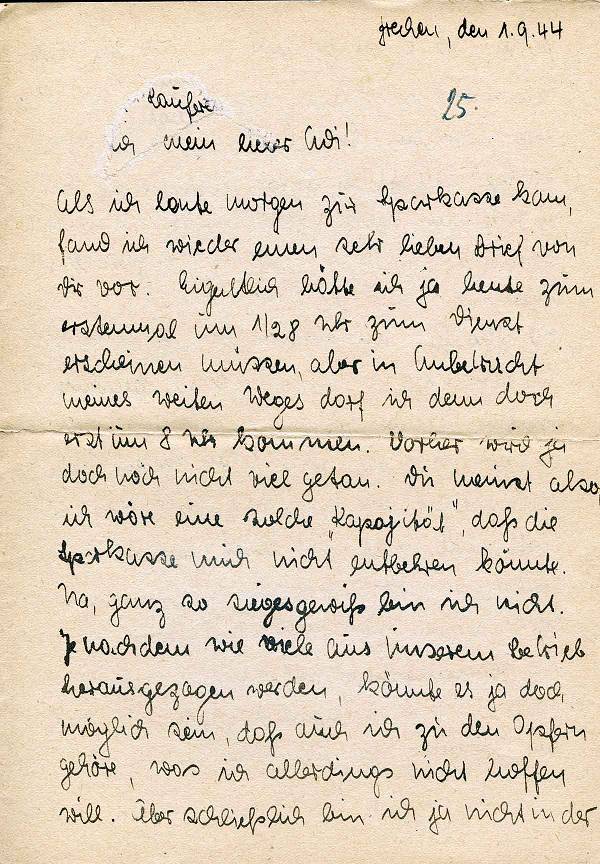 Frechen, den 1.9.44
25.
mein lieber Adi!
Als ich heute morgen zur Sparkasse kam,
fand ich wieder einen sehr lieben Brief von
Dir vor. Eigentlich hätte ich ja heute zum
erstenmal um 1/2 8 Uhr zum Dienst
erscheinen müssen, aber in Anbetracht
meines weiten Weges darf ich denn doch
erst um 8 Uhr kommen. Vorher wird ja
doch noch nicht viel getan. Du meinst also,
ich wäre eine solche „Kapazität", daß die
Sparkasse mich nicht entbehren könnte.
Na, ganz so siegesgewiß bin ich nicht.
Je nachdem wie viele aus unserem Betrieb
herausgezogen werden, könnte es ja doch
möglich sein, daß auch ich zu den Opfern
gehöre, was ich allerdings nicht hoffen
will. Aber schließlich bin ich ja nicht in der